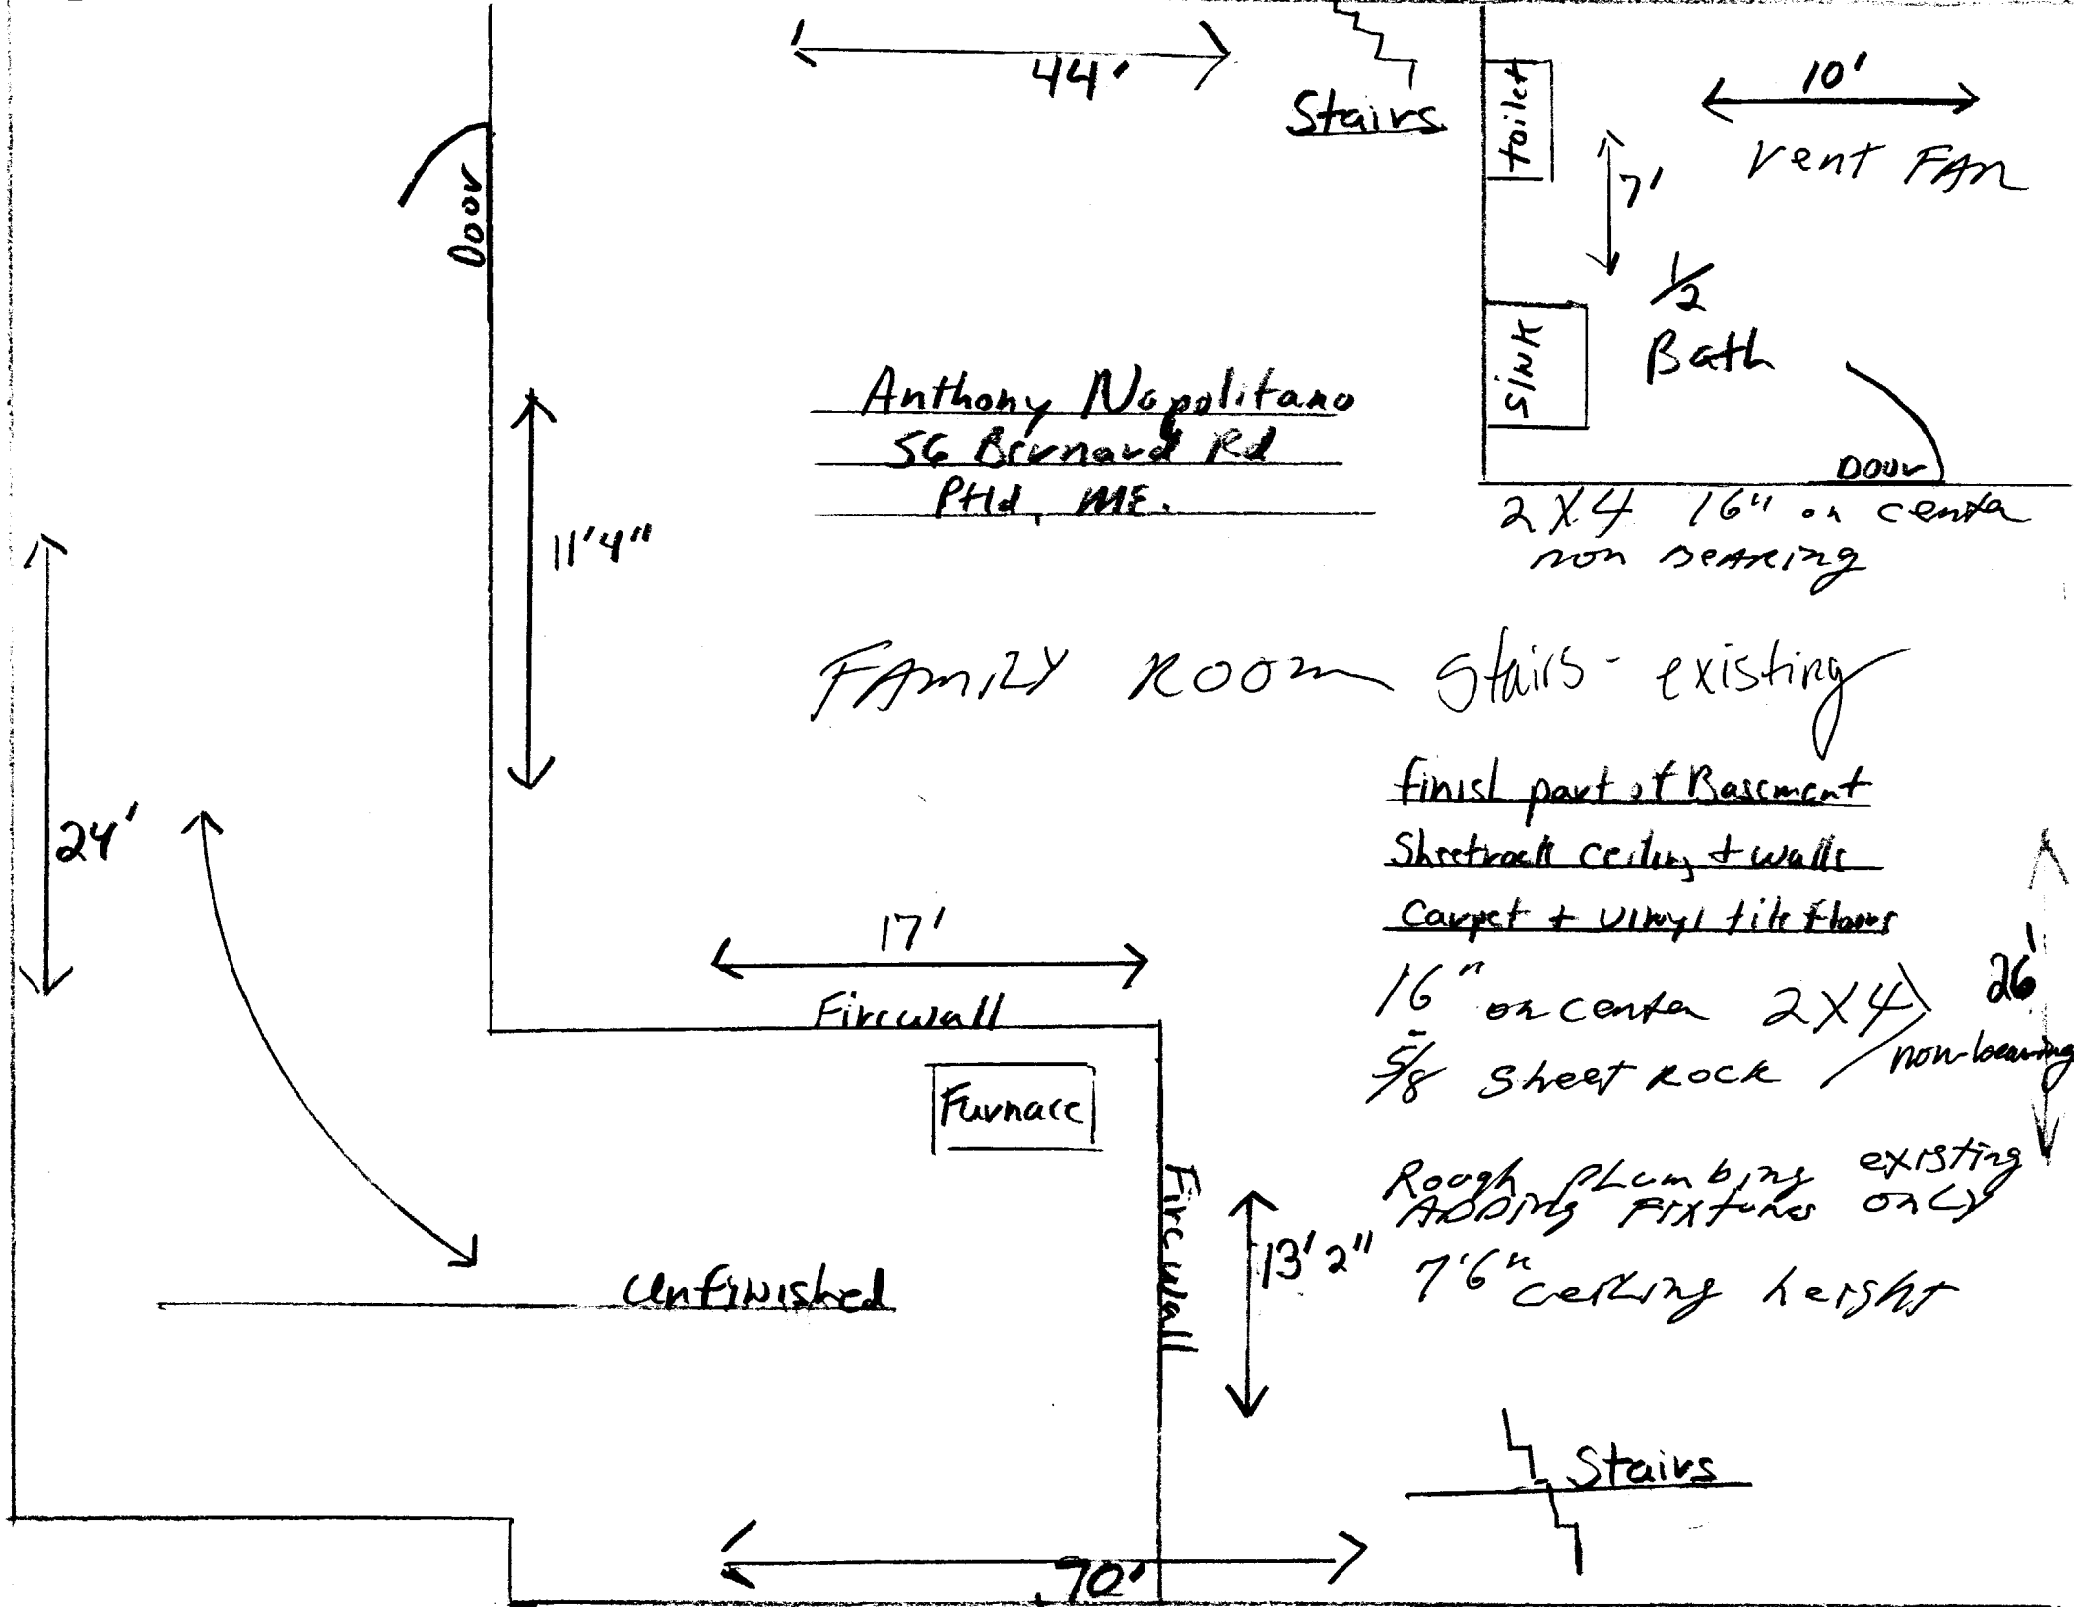 44'
Stairs
toilet
10'
Vent FAN
7'
Door
1/2
Bath
SINK
Door
Anthony Napolitano
56 Bernard Rd
Ptld, ME.
2X4 16" on center
non BEARING
11'4"
FAMILY ROOM
Stairs - existing
24'
finish part of Basement
Sheetrock ceiling + walls
Carpet + vinyl tile floors
17'
Firewall
16" on center 2X4
5/8 Sheet ROCK
non-bearing
26'
Furnace
Firewall
Rough PLumbing existing
ADDING FIXtures ONLY
13'2"
7'6" ceiling height
Unfinished
Stairs
70'